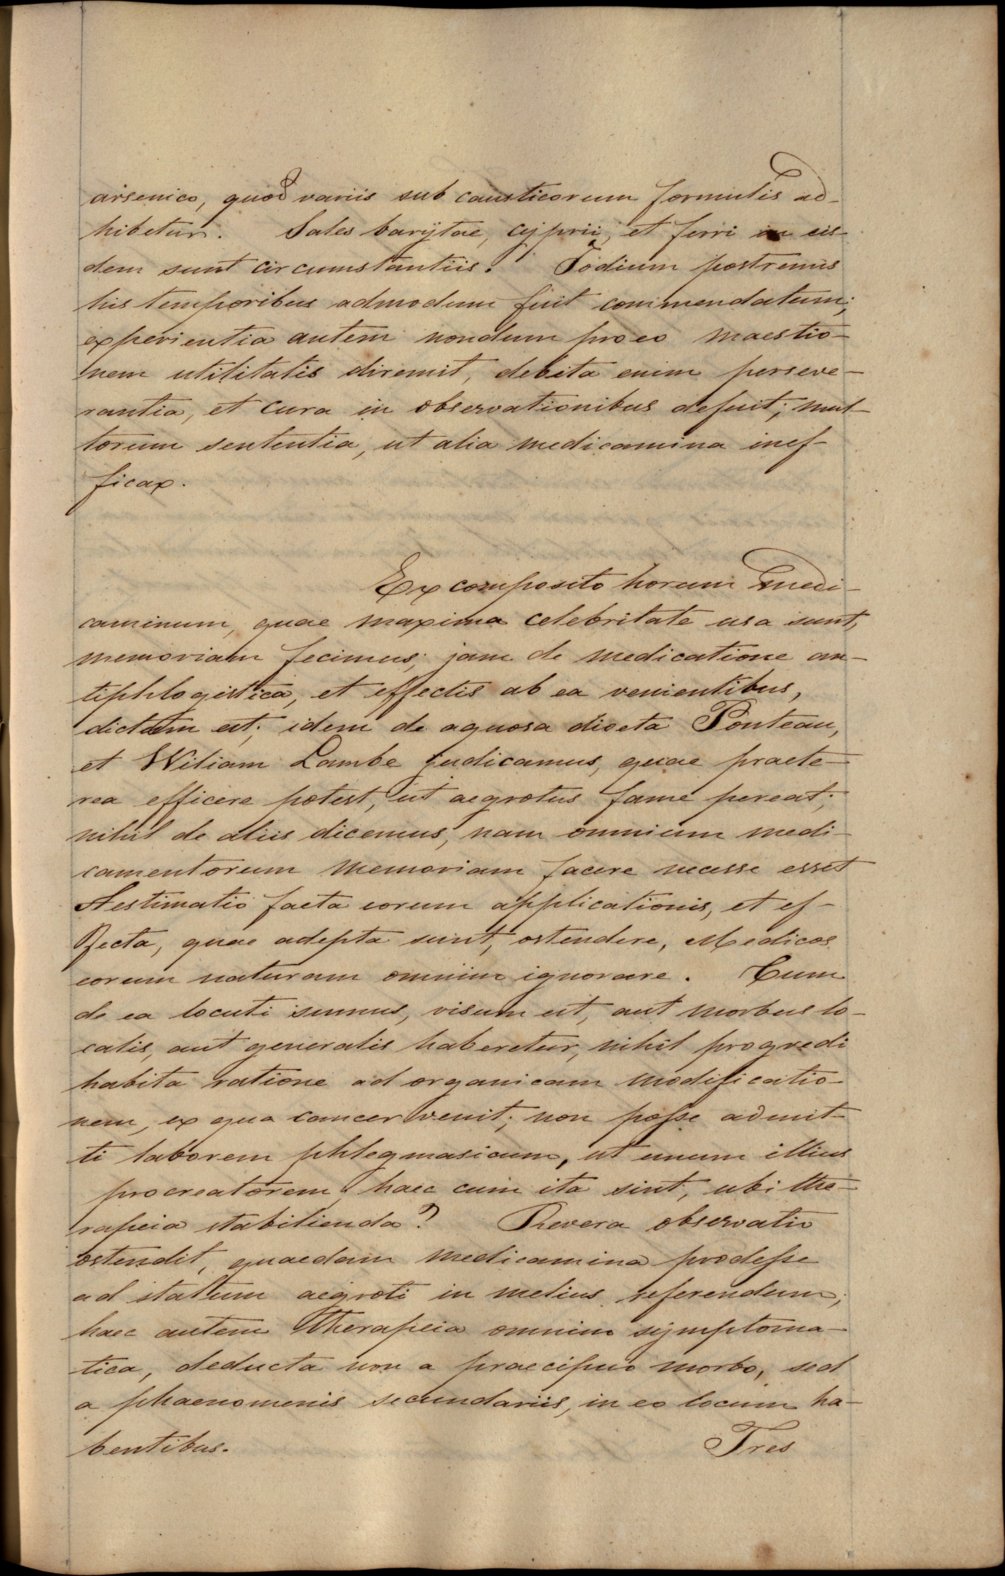 arsenico, quod variis sub causticorum formulis ad-
hibetur. Sales barÿtae, cÿprii, et ferri in eis-
dem sunt circumstantiis. Jodium postremis
his temporibus admodum fuit commendatum;
experientia autem nondum pro eo maestio-
nem utilitatis diremit, debita enim perseve-
rantia, et cura in observationibus defuit; mul-
torum sententia, ut alia medicamina inef-
ficax.
Ex composito horum medi-
caminum, quae maxima celebritate usa sunt,
memoriam fecimus; jam de medicatione an-
tiphlogistica, et effectis ab ea venientibus,
dictum est; idem de aquosa diaeta Ponteau,
et Wiliam Lambe judicamus, quae praete-
rea efficere potest, ut aegrotus fame pereat;
nihil de aliis dicemus, nam omnium medi-
camentorum memoriam facere necesse esset
Aestimatio facta eorum applicationis, et ef-
fecta, quae adepta sunt, ostendere, Medicos
eorum naturam omnim ignorare. Cum
de ea locuti sumus, visum est, aut morbus lo-
calis, aut generalis haberetur, nihil progredi
habita ratione ad organicam modificatio-
nem, ex qua cancer venit; non posse admit-
ti laborem phlegmasicum, ut unum illius
procreatorem; haec cum ita sint, ubi the-
rapeia stabilienda? Revera observatio
ostendit, quaedam medicamina prodesse
ad statum aegroti in melius referendum;
haec autem therapeia omnino symptoma-
tica, deducta non a praecipuo morbo, sed
a phaenomenis secundariis, in eo locum ha-
bentibus.
Tres